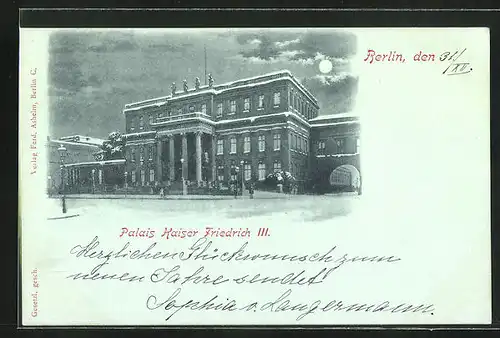 Berlin, den 31/XII.
Verlag Ferd. Ashelm, Berlin C.
Gesetzl. gesch.
Palais Kaiser Friedrich III.
Herzlichen Glückwunsch zum
neuen Jahre sendet
Sophia v. Langermann.